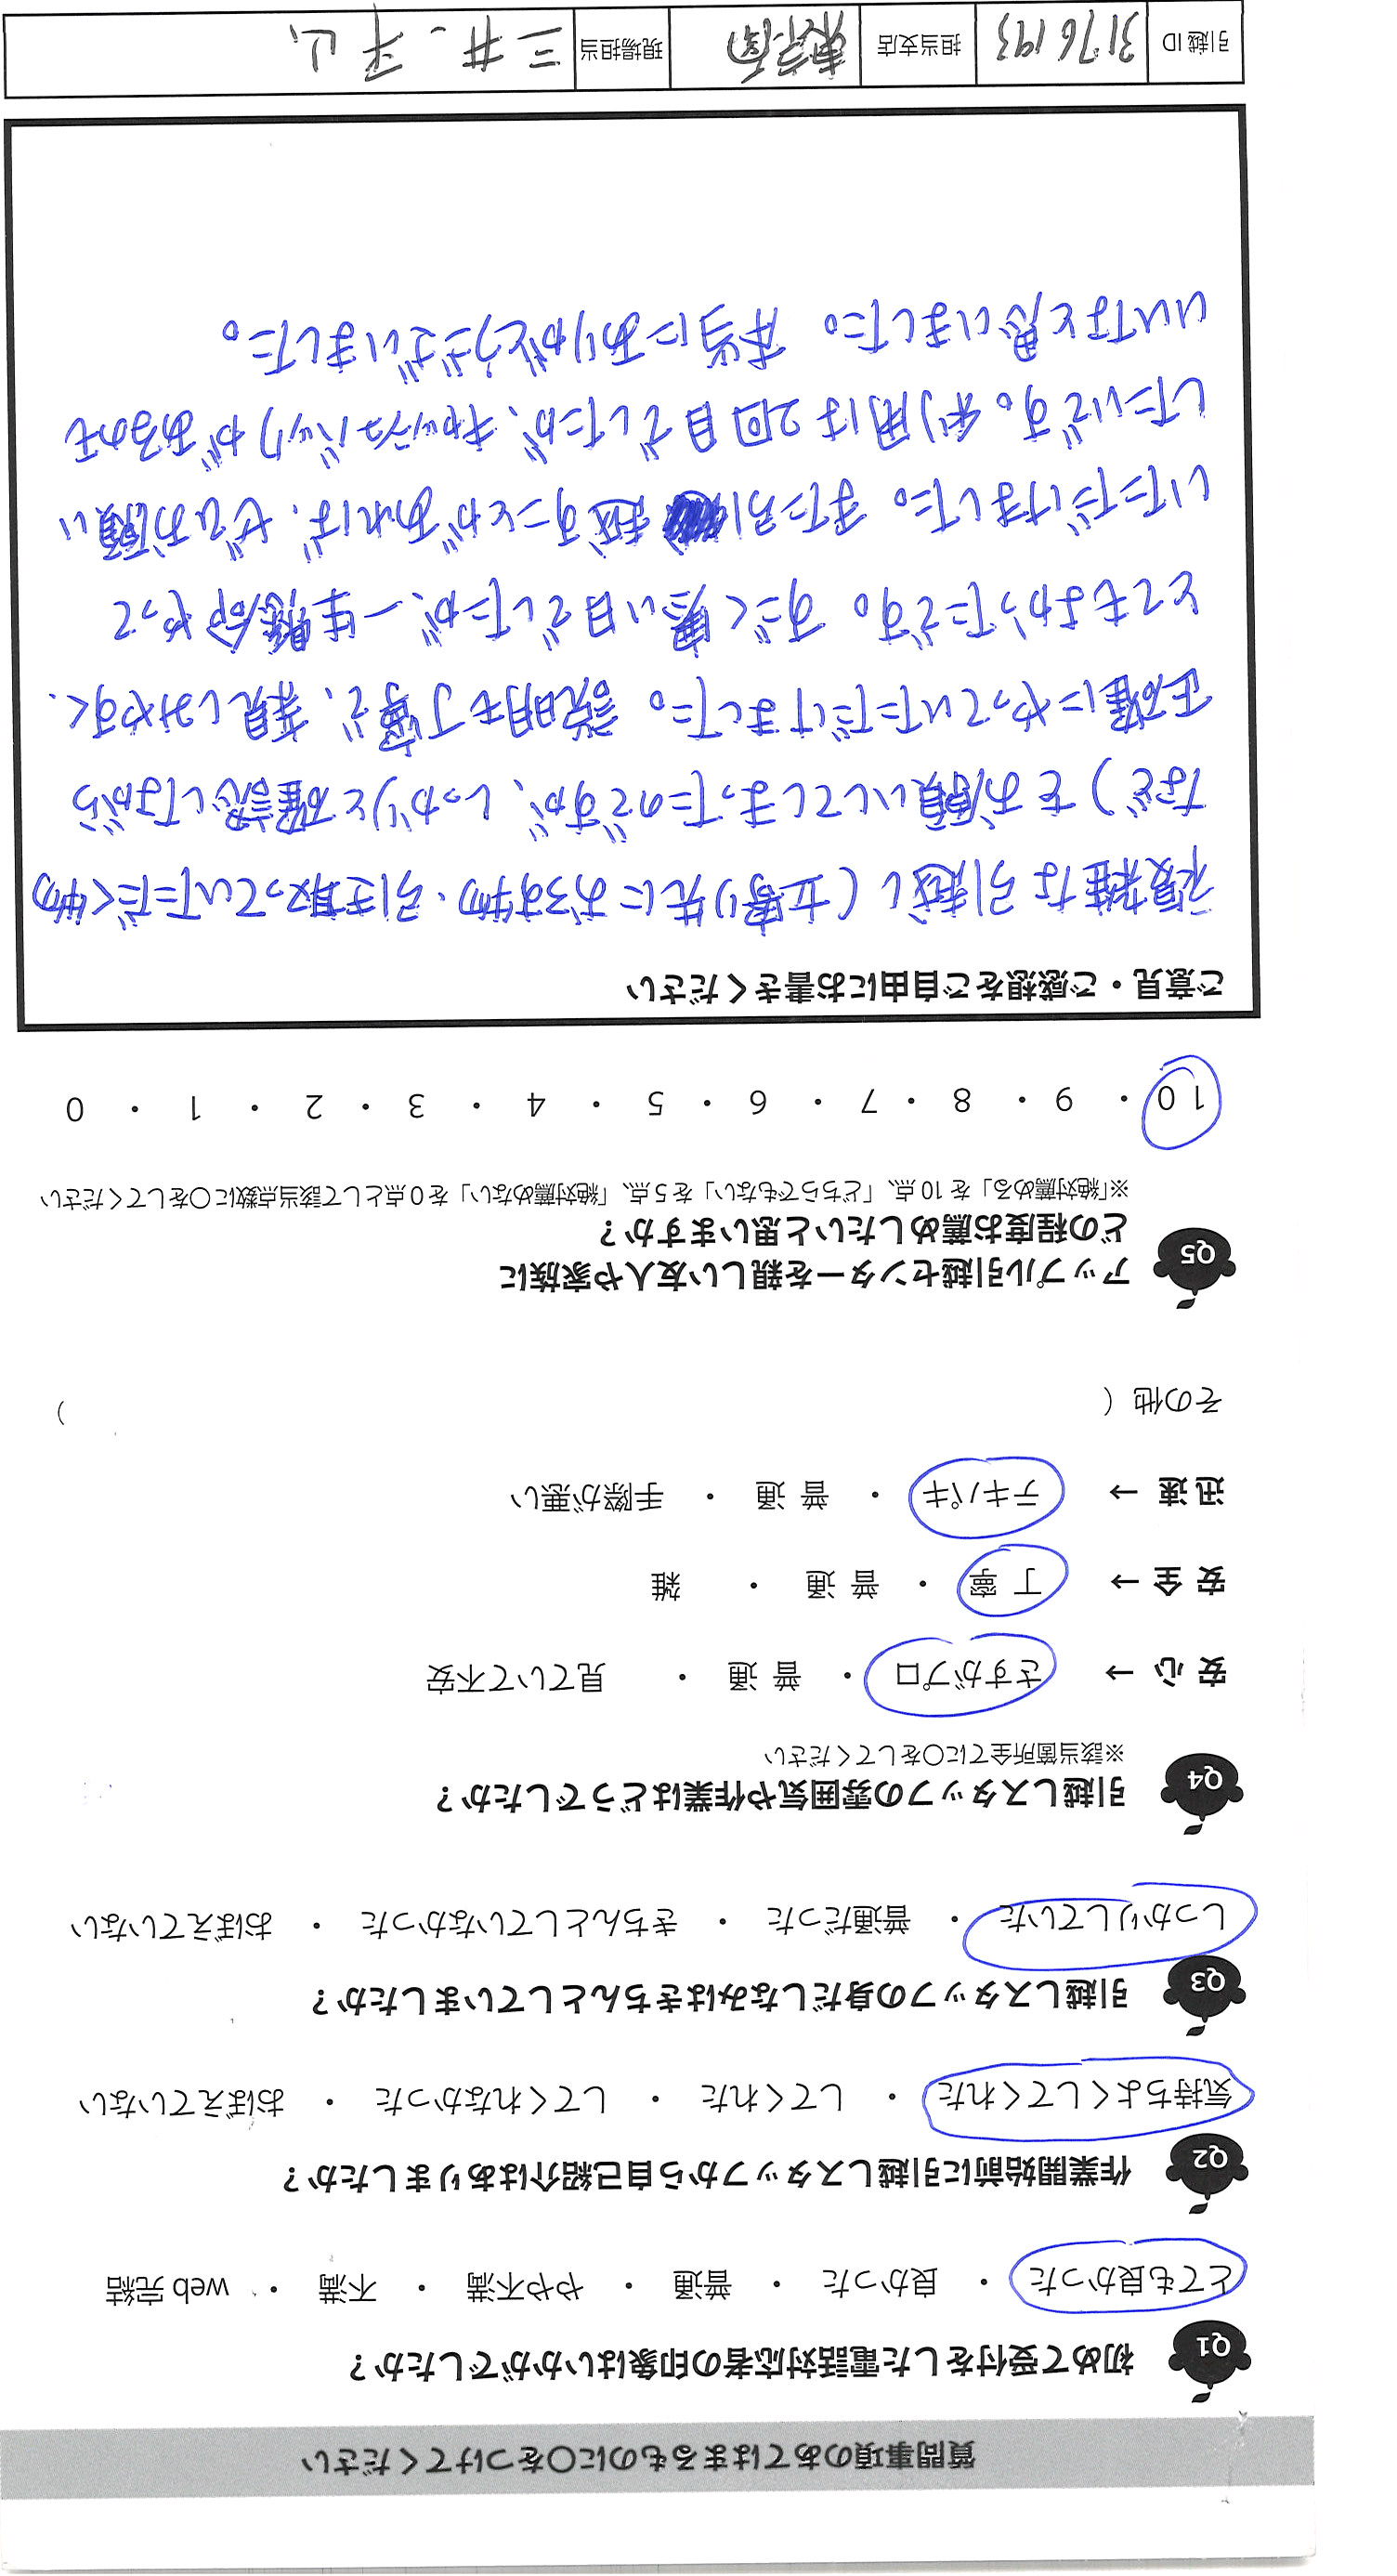 質問事項のあてはまるものに○をつけてください
Q1 初めて受付をした電話対応者の印象はいかがでしたか?
とても良かった ・ 良かった ・ 普通 ・ やや不満 ・ 不満 ・ web 完結
Q2 作業開始前に引越しスタッフから自己紹介はありましたか?
気持ちよくしてくれた ・ してくれた ・ してくれなかった ・ おぼえていない
Q3 引越しスタッフの身だしなみはきちんとしていましたか?
しっかりしていた ・ 普通だった ・ きちんとしていなかった ・ おぼえていない
Q4 引越しスタッフの雰囲気や作業はどうでしたか?
※該当箇所全てに○をしてください
安 心 → さすがプロ ・ 普 通 ・ 見ていて不安
安 全 → 丁 寧 ・ 普 通 ・ 雑
迅 速 → テキパキ ・ 普 通 ・ 手際が悪い
その他 ( )
Q5 アップル引越センターを親しい友人や家族に
どの程度お薦めしたいと思いますか?
※「絶対薦める」を 10 点、「どちらでもない」を 5 点、「絶対薦めない」を 0 点として該当点数に○をしてください
10 ・ 9 ・ 8 ・ 7 ・ 6 ・ 5 ・ 4 ・ 3 ・ 2 ・ 1 ・ 0
ご意見・ご感想をご自由にお書きください
複雑な引越し(立寄り先におろす物・引き取っていただく物
など)をお願いしてしまったのですが、しっかりと確認しながら
正確にやっていただけました。説明も丁寧で、親しみやすく
とてもよかったです。すごく暑い日でしたが、一生懸命やって
いただけました。また引越すことがあれば、ぜひお願い
したいです。利用は2回目でしたが、キャッシュバックがあるのも
いいなと思いました。本当にありがとうございました。
引越 ID 3176193 担当支店 東京南 現場担当 三井、平山